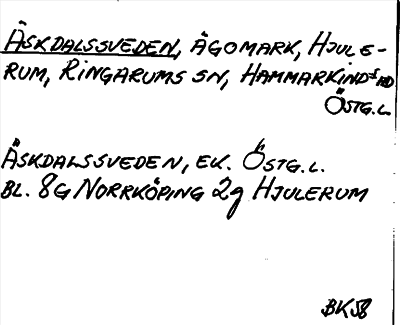 ÄSKDALSSVEDEN, ÄGOMARK, HJULE-
RUM, RINGARUMS SN, HAMMARKINDS HD
ÖSTG.L.
ÄSKDALSSVEDEN, EK. ÖSTG.L.
BL. 8G NORRKÖPING 2g HJULERUM
BK58